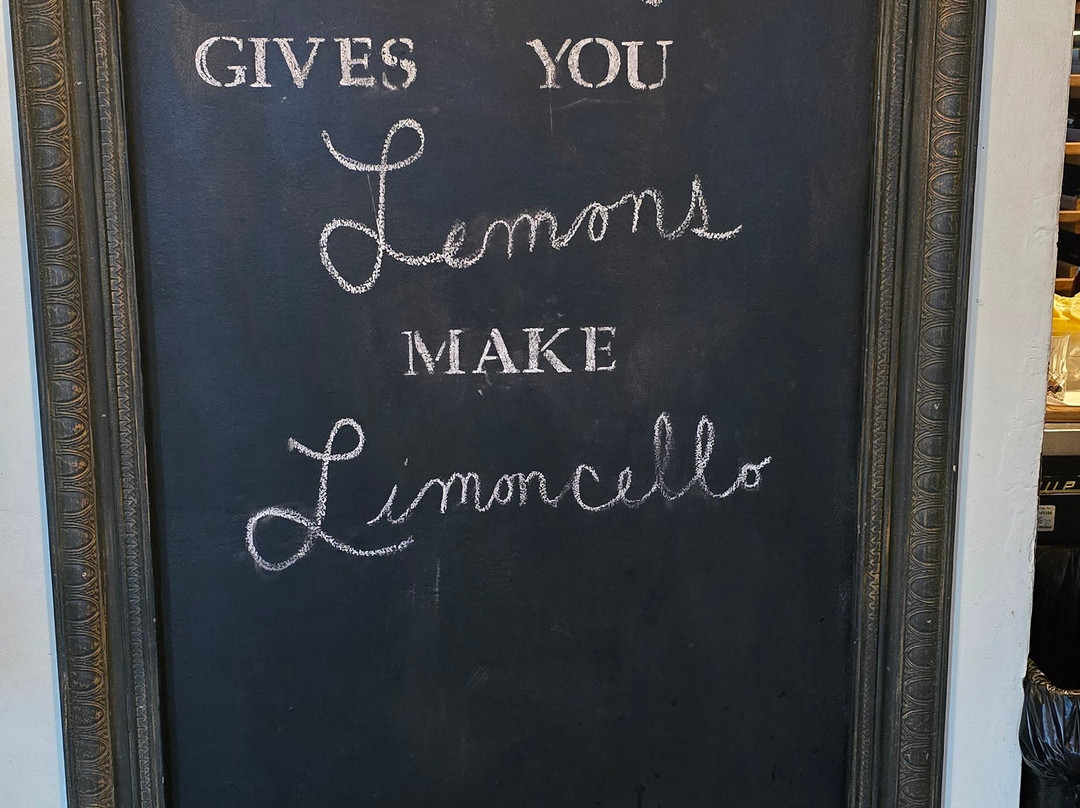 GIVES YOU
Lemons
MAKE
Limoncello